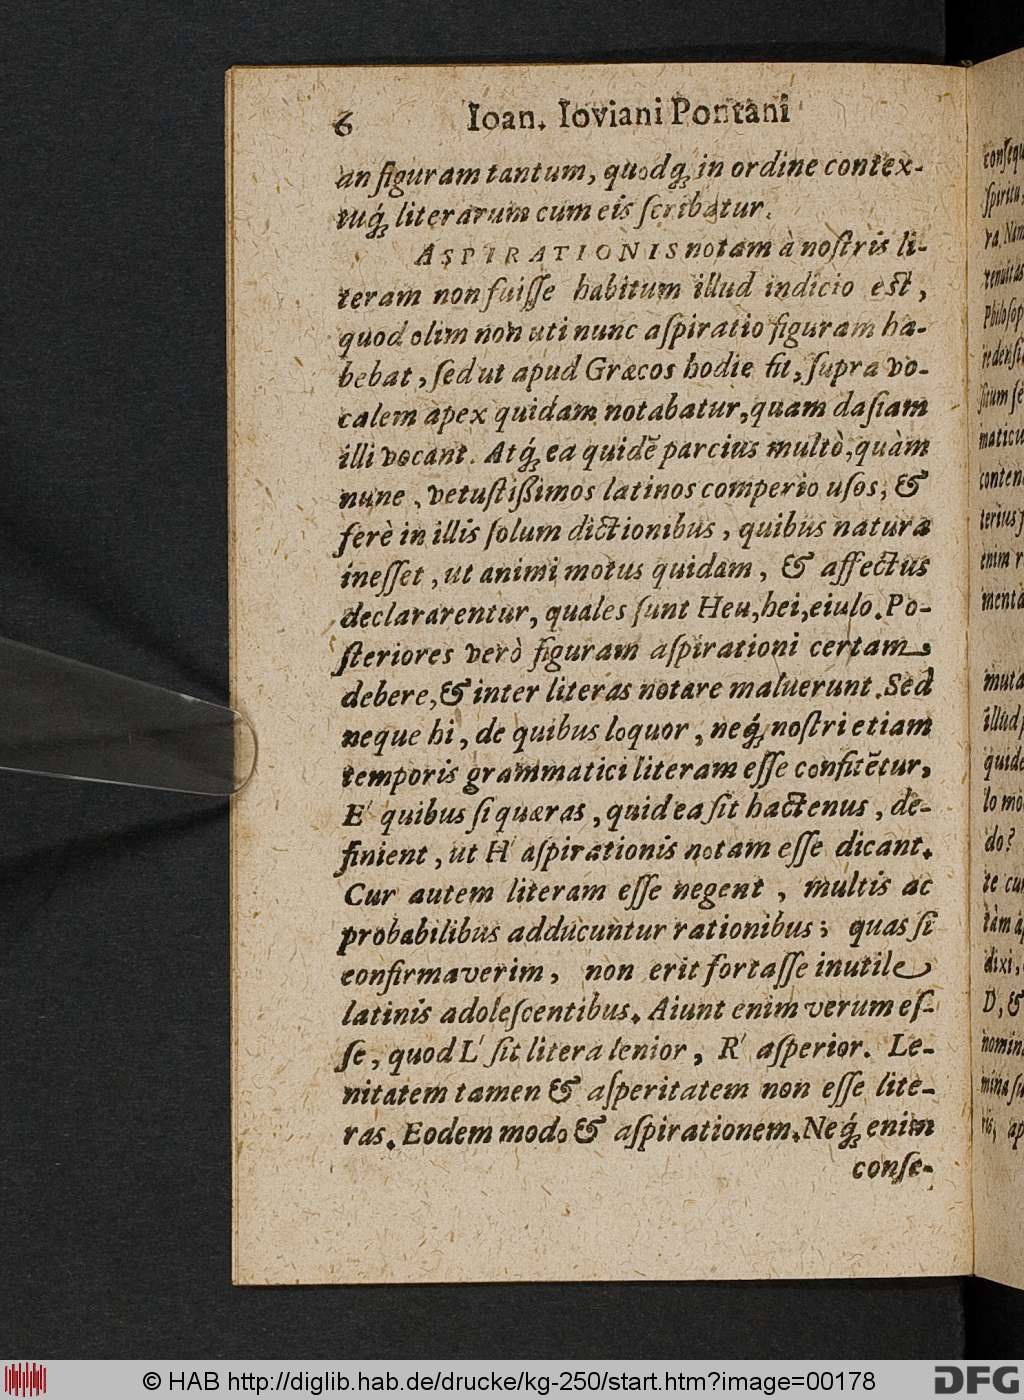 6 Ioan. Ioviani Pontani
an figuram tantum, quodq́; in ordine contex-
tuq́; literarum cum eis ſcribatur.
ASPIRATIONIS notam à noſtris li-
teram non fuiſſe habitum illud indicio eſt,
quod olim non uti nunc aſpiratio figuram ha-
bebat, ſed ut apud Græcos hodie fit, ſupra vo-
calem apex quidam notabatur, quam daſiam
illi vocant. Atq́; ea quidẽ parcius multò, quàm
nunc, vetuſtißimos latinos comperio uſos, &
ferè in illis ſolum dictionibus, quibus natura
ineſſet, ut animi motus quidam, & affectus
declararentur, quales ſunt Heu, hei, eiulo. Po-
ſteriores verò figuram aſpirationi certam
debere, & inter literas notare maluerunt. Sed
neque hi, de quibus loquor, neq́; noſtri etiam
temporis grammatici literam eſſe confitẽtur,
E' quibus ſi quæras, quid ea ſit hactenus, de-
finient, ut H' aſpirationis notam eſſe dicant.
Cur autem literam eſſe negent, multis ac
probabilibus adducuntur rationibus; quas ſi
confirmaverim, non erit fortaſſe inutile
latinis adoleſcentibus. Aiunt enim verum eſ-
ſe, quod L' ſit litera lenior, R' aſperior. Le-
nitatem tamen & aſperitatem non eſſe lite-
ras. Eodem modo & aſpirationem. Neq́; enim
conſe-
conſequ
ſpiritu,
ra. Nam
tenuitas
Philoſop
maticu
conten
enim r
mentà
muta
illud p
quide
lo mo
do?
te cu
tàm a
dixi,
D, &
nomin
mina ſu
ris, ap
© HAB http://diglib.hab.de/drucke/kg-250/start.htm?image=00178
DFG